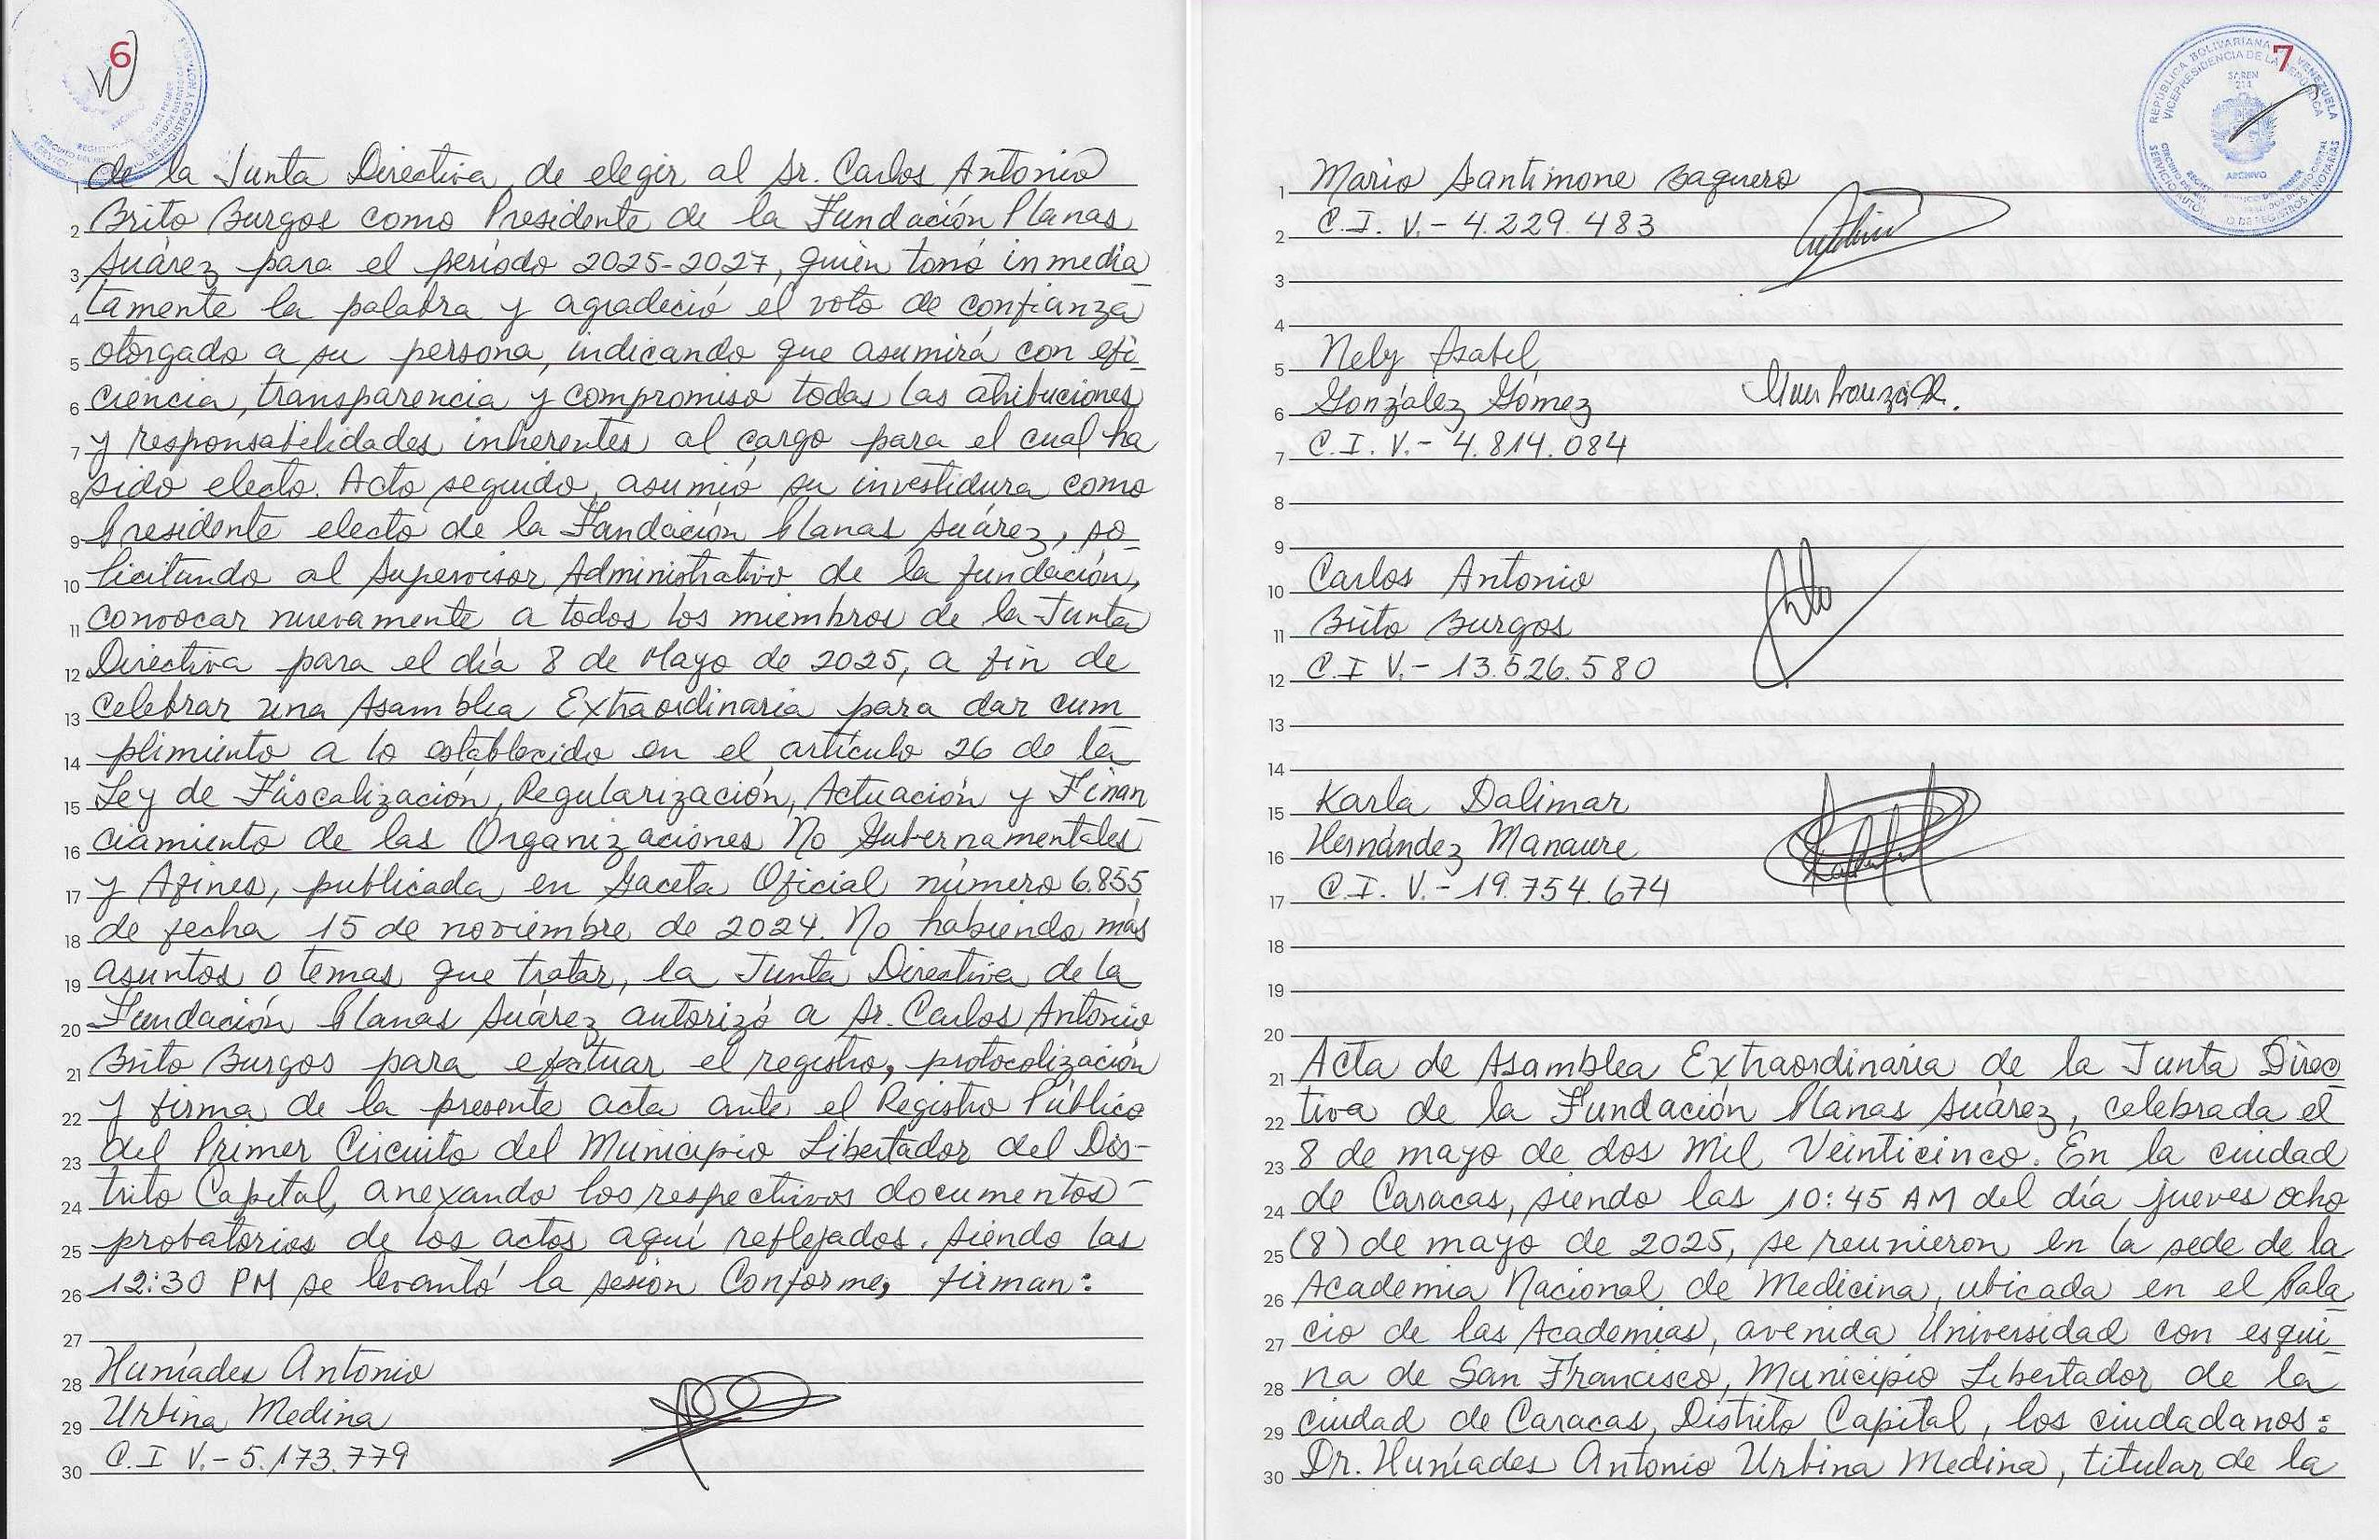 6
de la Junta Directiva, de elegir al Sr. Carlos Antonio
Brito Burgos como Presidente de la Fundación Planas
Suárez para el período 2025-2027, quien tomó inmedia
tamente la palabra y agradeció el voto de confianza
otorgado a su persona, indicando que asumirá con efi
ciencia, transparencia y compromiso todas las atribuciones
y responsabilidades inherentes al cargo para el cual ha
sido electo. Acto seguido, asumió su investidura como
Presidente electo de la Fundación Planas Suárez, so
licitando al Supervisor Administrativo de la fundación,
convocar nuevamente a todos los miembros de la Junta
Directiva para el día 8 de Mayo de 2025, a fin de
celebrar una Asamblea Extraordinaria para dar cum
plimiento a lo establecido en el artículo 26 de la
Ley de Fiscalización, Regularización, Actuación y Finan
ciamiento de las Organizaciones No Gubernamentales
y Afines, publicada en Gaceta Oficial número 6.855
de fecha 15 de noviembre de 2024. No habiendo más
asuntos o temas que tratar, la Junta Directiva de la
Fundación Planas Suárez autorizó a Sr. Carlos Antonio
Brito Burgos para efectuar el registro, protocolización
y firma de la presente acta ante el Registro Público
del Primer Circuito del Municipio Libertador del Dis-
trito Capital, anexando los respectivos documentos
probatorios de los actos aquí reflejados. Siendo las
12:30 PM se levantó la sesión Conforme, firman:
Huníades Antonio
Urbina Medina
C.I V.- 5.173.779
7
REPÚBLICA BOLIVARIANA DE VENEZUELA
VICEPRESIDENCIA DE LA REPÚBLICA
SAREN
214
ARCHIVO
Mario Santimone Baquero
C.I. V.- 4.229.483
Nely Isabel
González Gómez
C.I. V.- 4.814.084
Carlos Antonio
Brito Burgos
C.I V.- 13.526.580
Karla Dalimar
Hernández Manaure
C.I. V.- 19.754.674
Acta de Asamblea Extraordinaria de la Junta Direc
tiva de la Fundación Planas Suárez, celebrada el
8 de mayo de dos Mil Veinticinco. En la ciudad
de Caracas, siendo las 10:45 AM del día jueves ocho
(8) de mayo de 2025, se reunieron en la sede de la
Academia Nacional de Medicina, ubicada en el Pala
cio de las Academias, avenida Universidad con esqui
na de San Francisco, Municipio Libertador de la
ciudad de Caracas, Distrito Capital, los ciudadanos:
Dr. Huníades Antonio Urbina Medina, titular de la